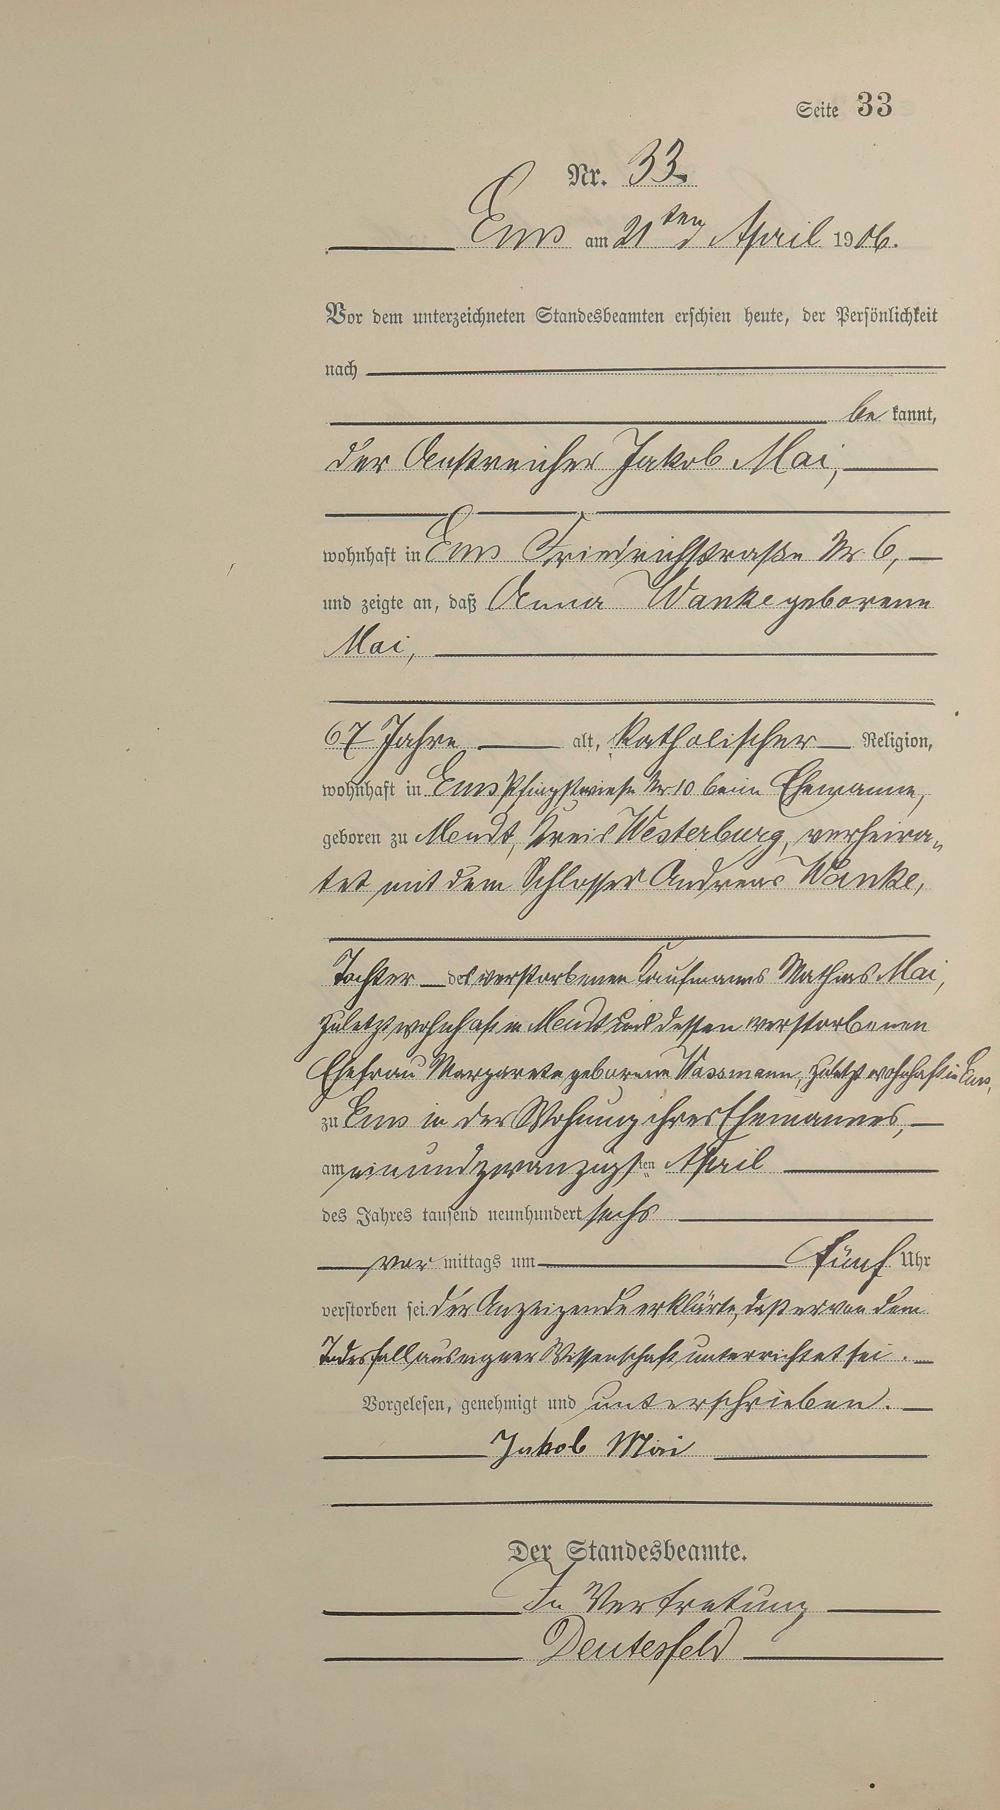 Seite 33
Nr. 33.
Ems am 21ten April 1906.
Vor dem unterzeichneten Standesbeamten erschien heute, der Persönlichkeit
nach
be kannt,
der Anstreicher Jakob Mai,
wohnhaft in Ems Friedrichstraße Nr 6,
und zeigte an, daß Anna Wanke geborene
Mai,
67 Jahre alt, katholischer Religion,
wohnhaft in Ems Pfingstwiese Nr 10 beim Ehemanne,
geboren zu Mendt, Kreis Westerburg, verheira-
tet mit dem Schlosser Andreas Wanke,
Tochter des verstorbenen Kaufmanns Mathias Mai,
zuletzt wohnhaft in Mendt und dessen verstorbenen
Ehefrau Margarete geborene Wassmann, zuletzt wohnhaft in Ems,
zu Ems in der Wohnung ihres Ehemannes,
am einundzwanzigsten April
des Jahres tausend neunhundert sechs
vor mittags um fünf Uhr
verstorben sei. der Anzeigende erklärte, daß er von dem
Todesfall aus eigner Wissenschaft unterrichtet sei.
Vorgelesen, genehmigt und unterschrieben.
Jakob Mai
Der Standesbeamte.
In Vertretung
Deutesfeld